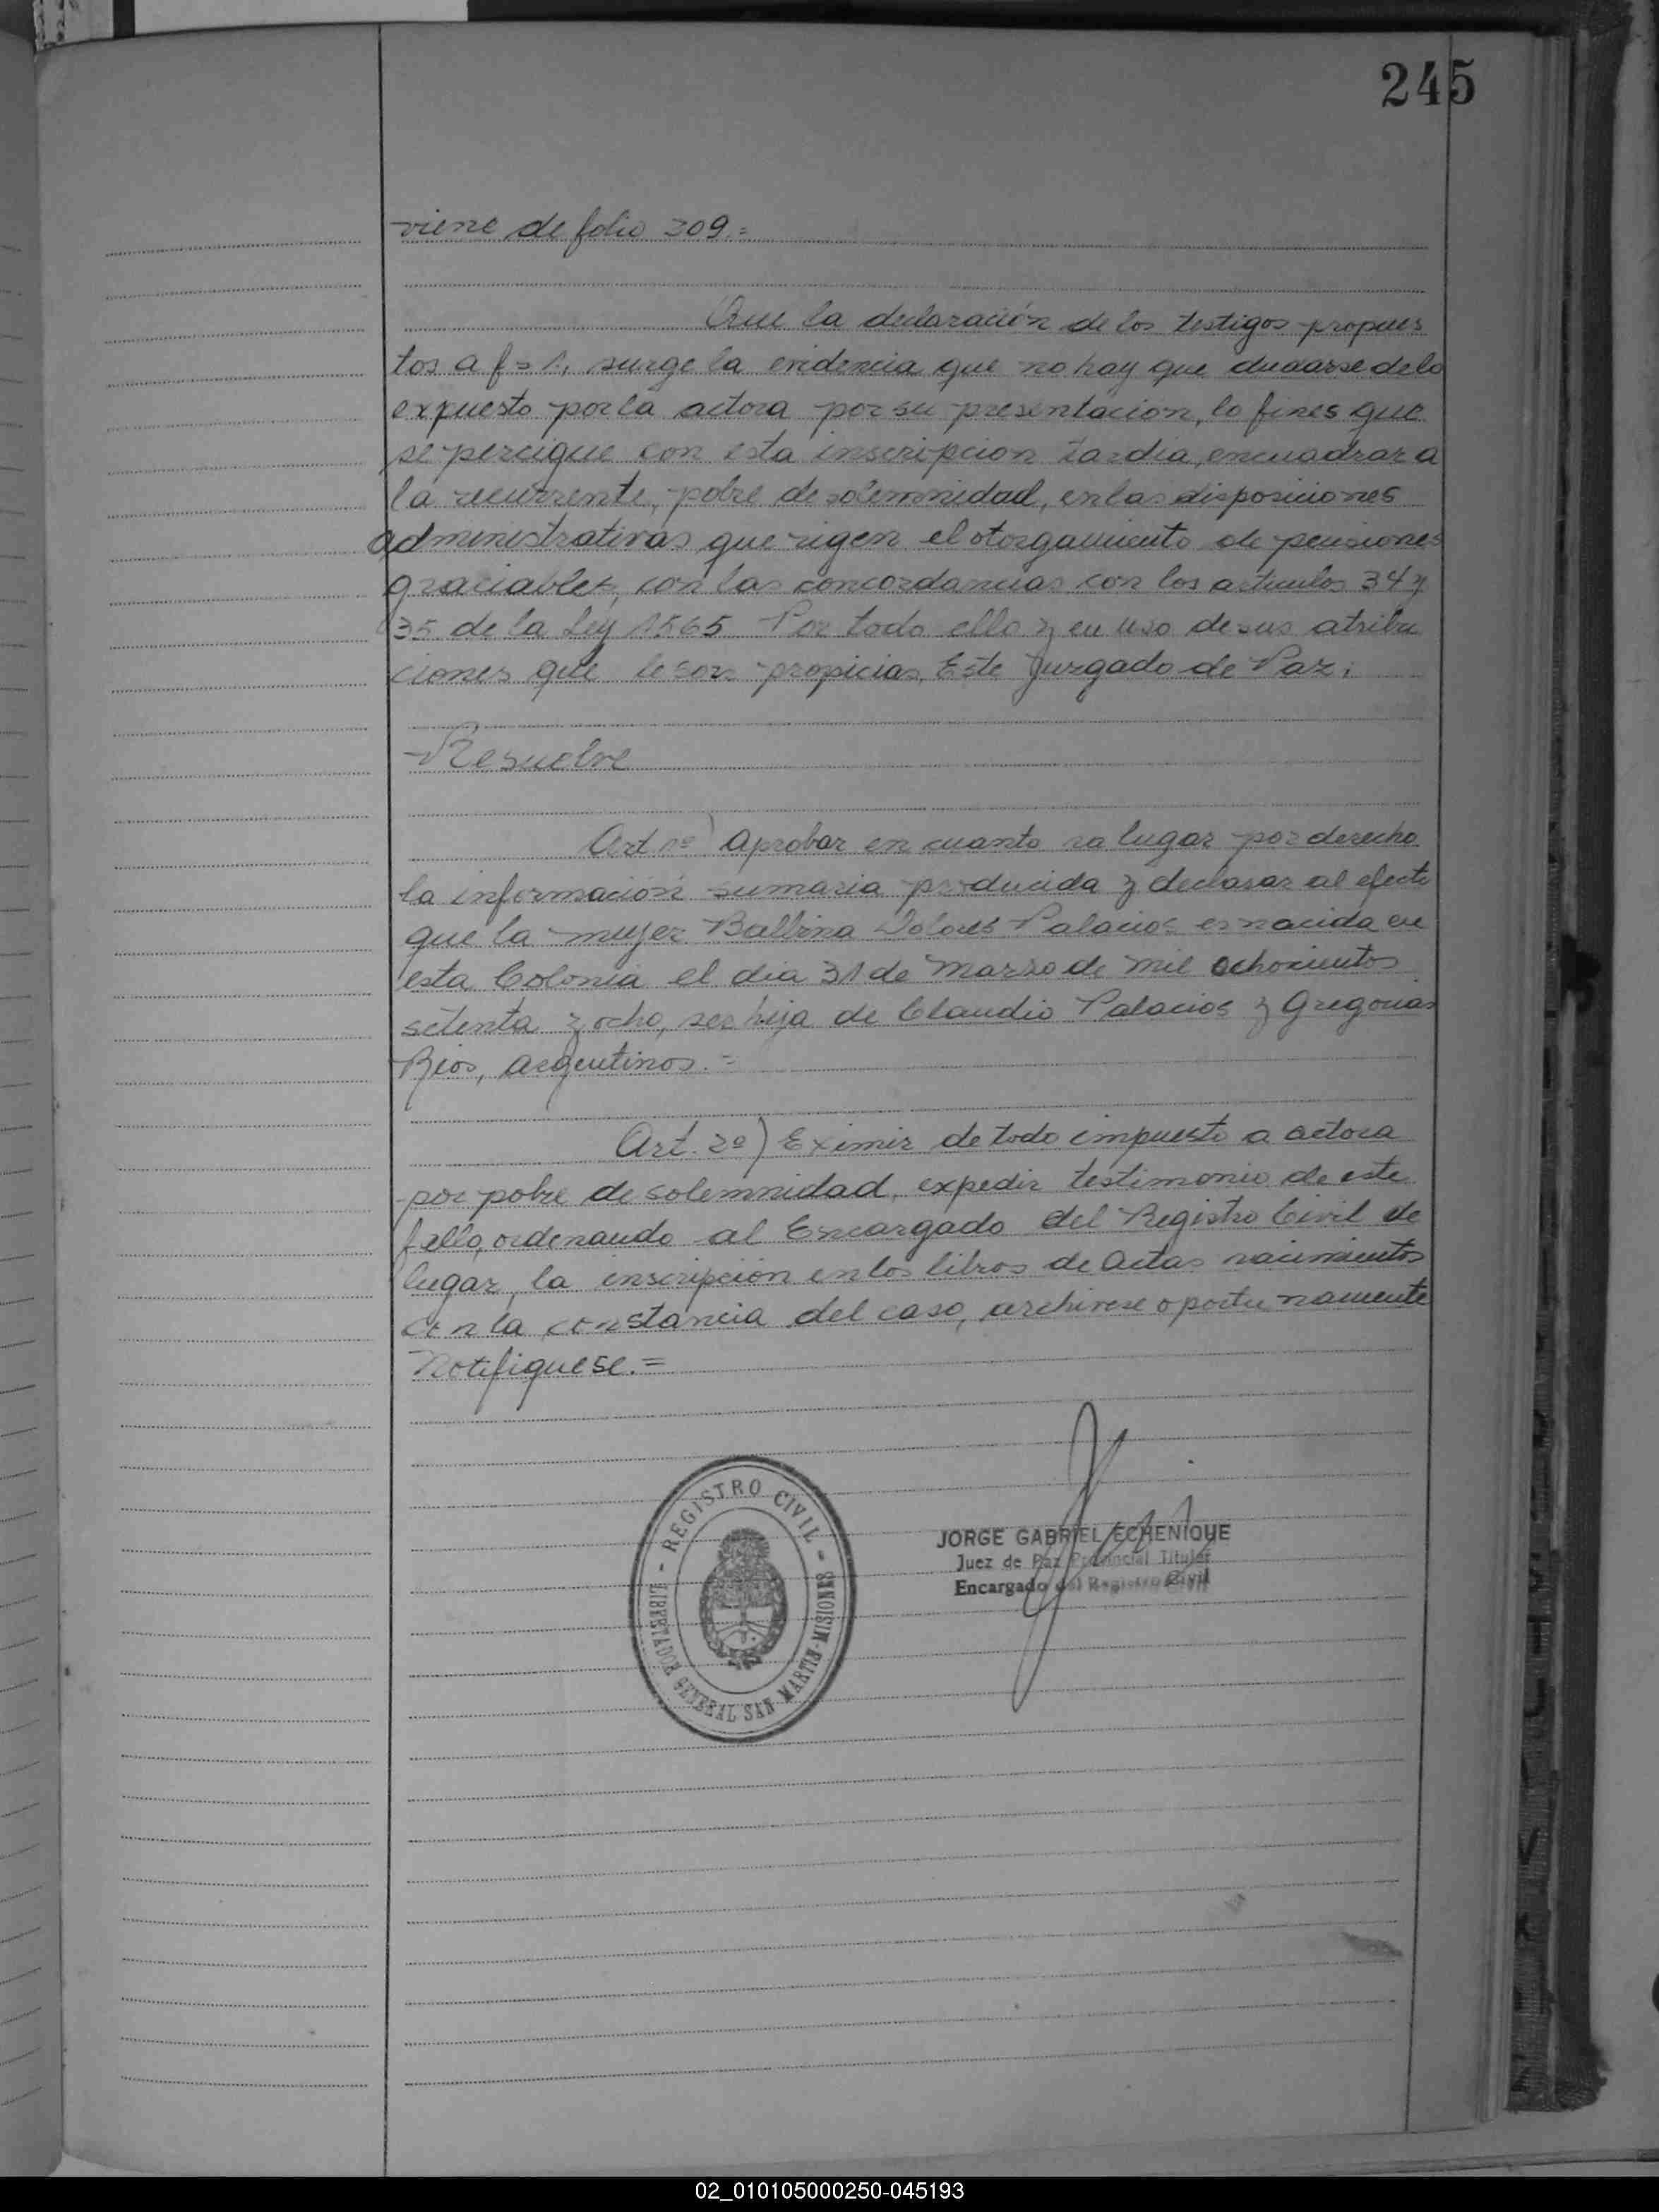 245
viene de folio 309.=
Que la declaración de los testigos propues
tos a fs 1., surge la evidencia que no hay que dudarse de lo
expuesto por la actora por su presentación, lo fines que
se percigue con esta inscripcion tardia, encuadrar a
la recurrente, pobre de solemnidad, en las disposiciones
administrativas que rigen el otorgamiento de pensiones
graciables, con las concordancias con los articulos 34 y
35 de la Ley 1565 Por todo ello y en uso de sus atribu
ciones que le son propicias, Este Juzgado de Paz;
Resuelve
Art 1º) Aprobar en cuanto ra lugar por derecho
la información sumaria producida y declarar al efecto
que la mujer Balbina Dolores Palacios es nacida en
esta Colonia el dia 31 de Marzo de mil ochocientos
setenta y ocho, ser hija de Claudio Palacios y Gregorias
Rios, argentinos.=
Art. 2º) Eximir de todo impuesto a actora
por pobre de solemnidad, expedir testimonio de este
fallo, ordenando al Encargado del Registro Civil de
lugar, la inscripción en los libros de Actas nacimientos
con la constancia del caso, archivese oportunamente
Notifiquese.=
- REGISTRO CIVIL -
LIBERTADOR GENERAL SAN MARTIN-MISIONES
JORGE GABRIEL ECHENIQUE
Juez de Paz Provincial Titular
Encargado del Registro Civil
02_010105000250-045193